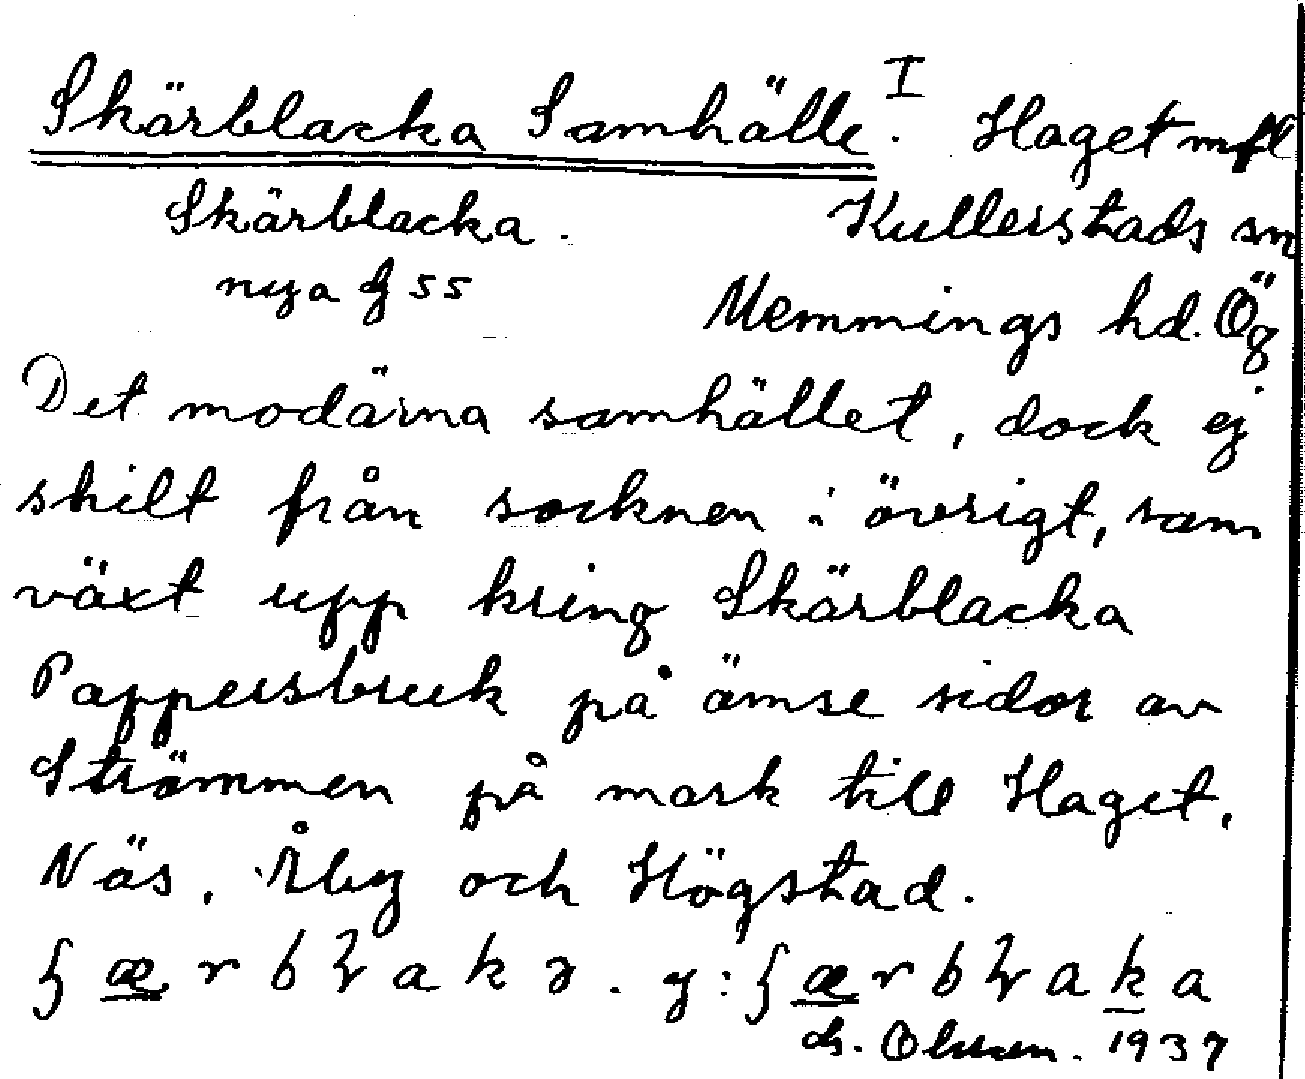 Skärblacka Samhälle. I Haget mfl
Skärblacka. Kullerstads sn
nya 55
Memmings hd. Ög
Det modärna samhället, dock ej
skilt från socknen i övrigt, som
växt upp kring Skärblacka
Pappersbruk på ömse sidor av
Strömmen på mark till Haget,
Näs, Åby och Högstad.
1937